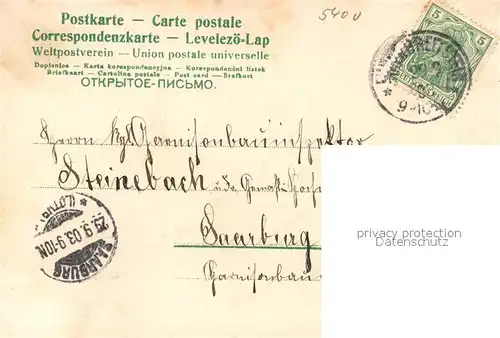 Postkarte — Carte postale
540
5 5
Correspondenzkarte — Levelező-Lap
Weltpostverein — Union postale universelle
Dopisnice — Karta korespondencyjna — Korespondenčni listek
Briefkaart — Cartolina postale — Post card — Brefkort
ОТКРЫТОЕ-ПИСЬМО.
9-10
Herrn Kgl. Garnisonbauinspektor
Steinebach u. s. Gemahl.
Saarburg
Garnisonbau
SAARBURG
25.9.03.9-10N.
* (LOTHR) *
privacy protection
AK-Ansichtskarten.de